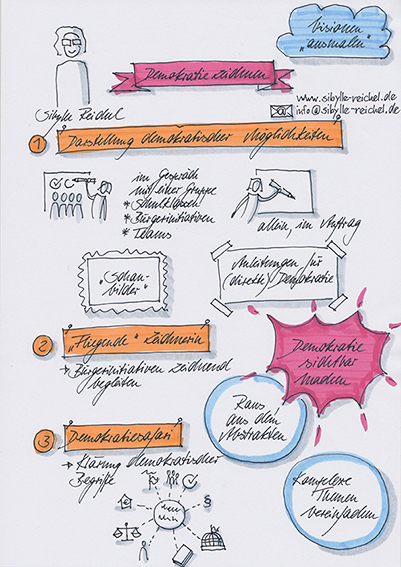 Visionen
„ausmalen"
Demokratie zeichnen
Sibylle Reichel
www.sibylle-reichel.de
info@sibylle-reichel.de
1 Darstellung demokratischer Möglichkeiten
im Gespräch
mit einer Gruppe
* Schulklassen
* Bürgerinitiativen
* Teams
allein, im Auftrag
„Schau-
bilder"
Anleitungen für
(direkte) Demokratie
2 „Fliegende" Zeichnerin
→ Bürgerinitiativen zeichnend
begleiten
Demokratie
sichtbar
machen
Raus
aus dem
Abstrakten
3 Demokratiesafari
→ Klärung demokratischer
Begriffe
§
Komplexe
Themen
vereinfachen